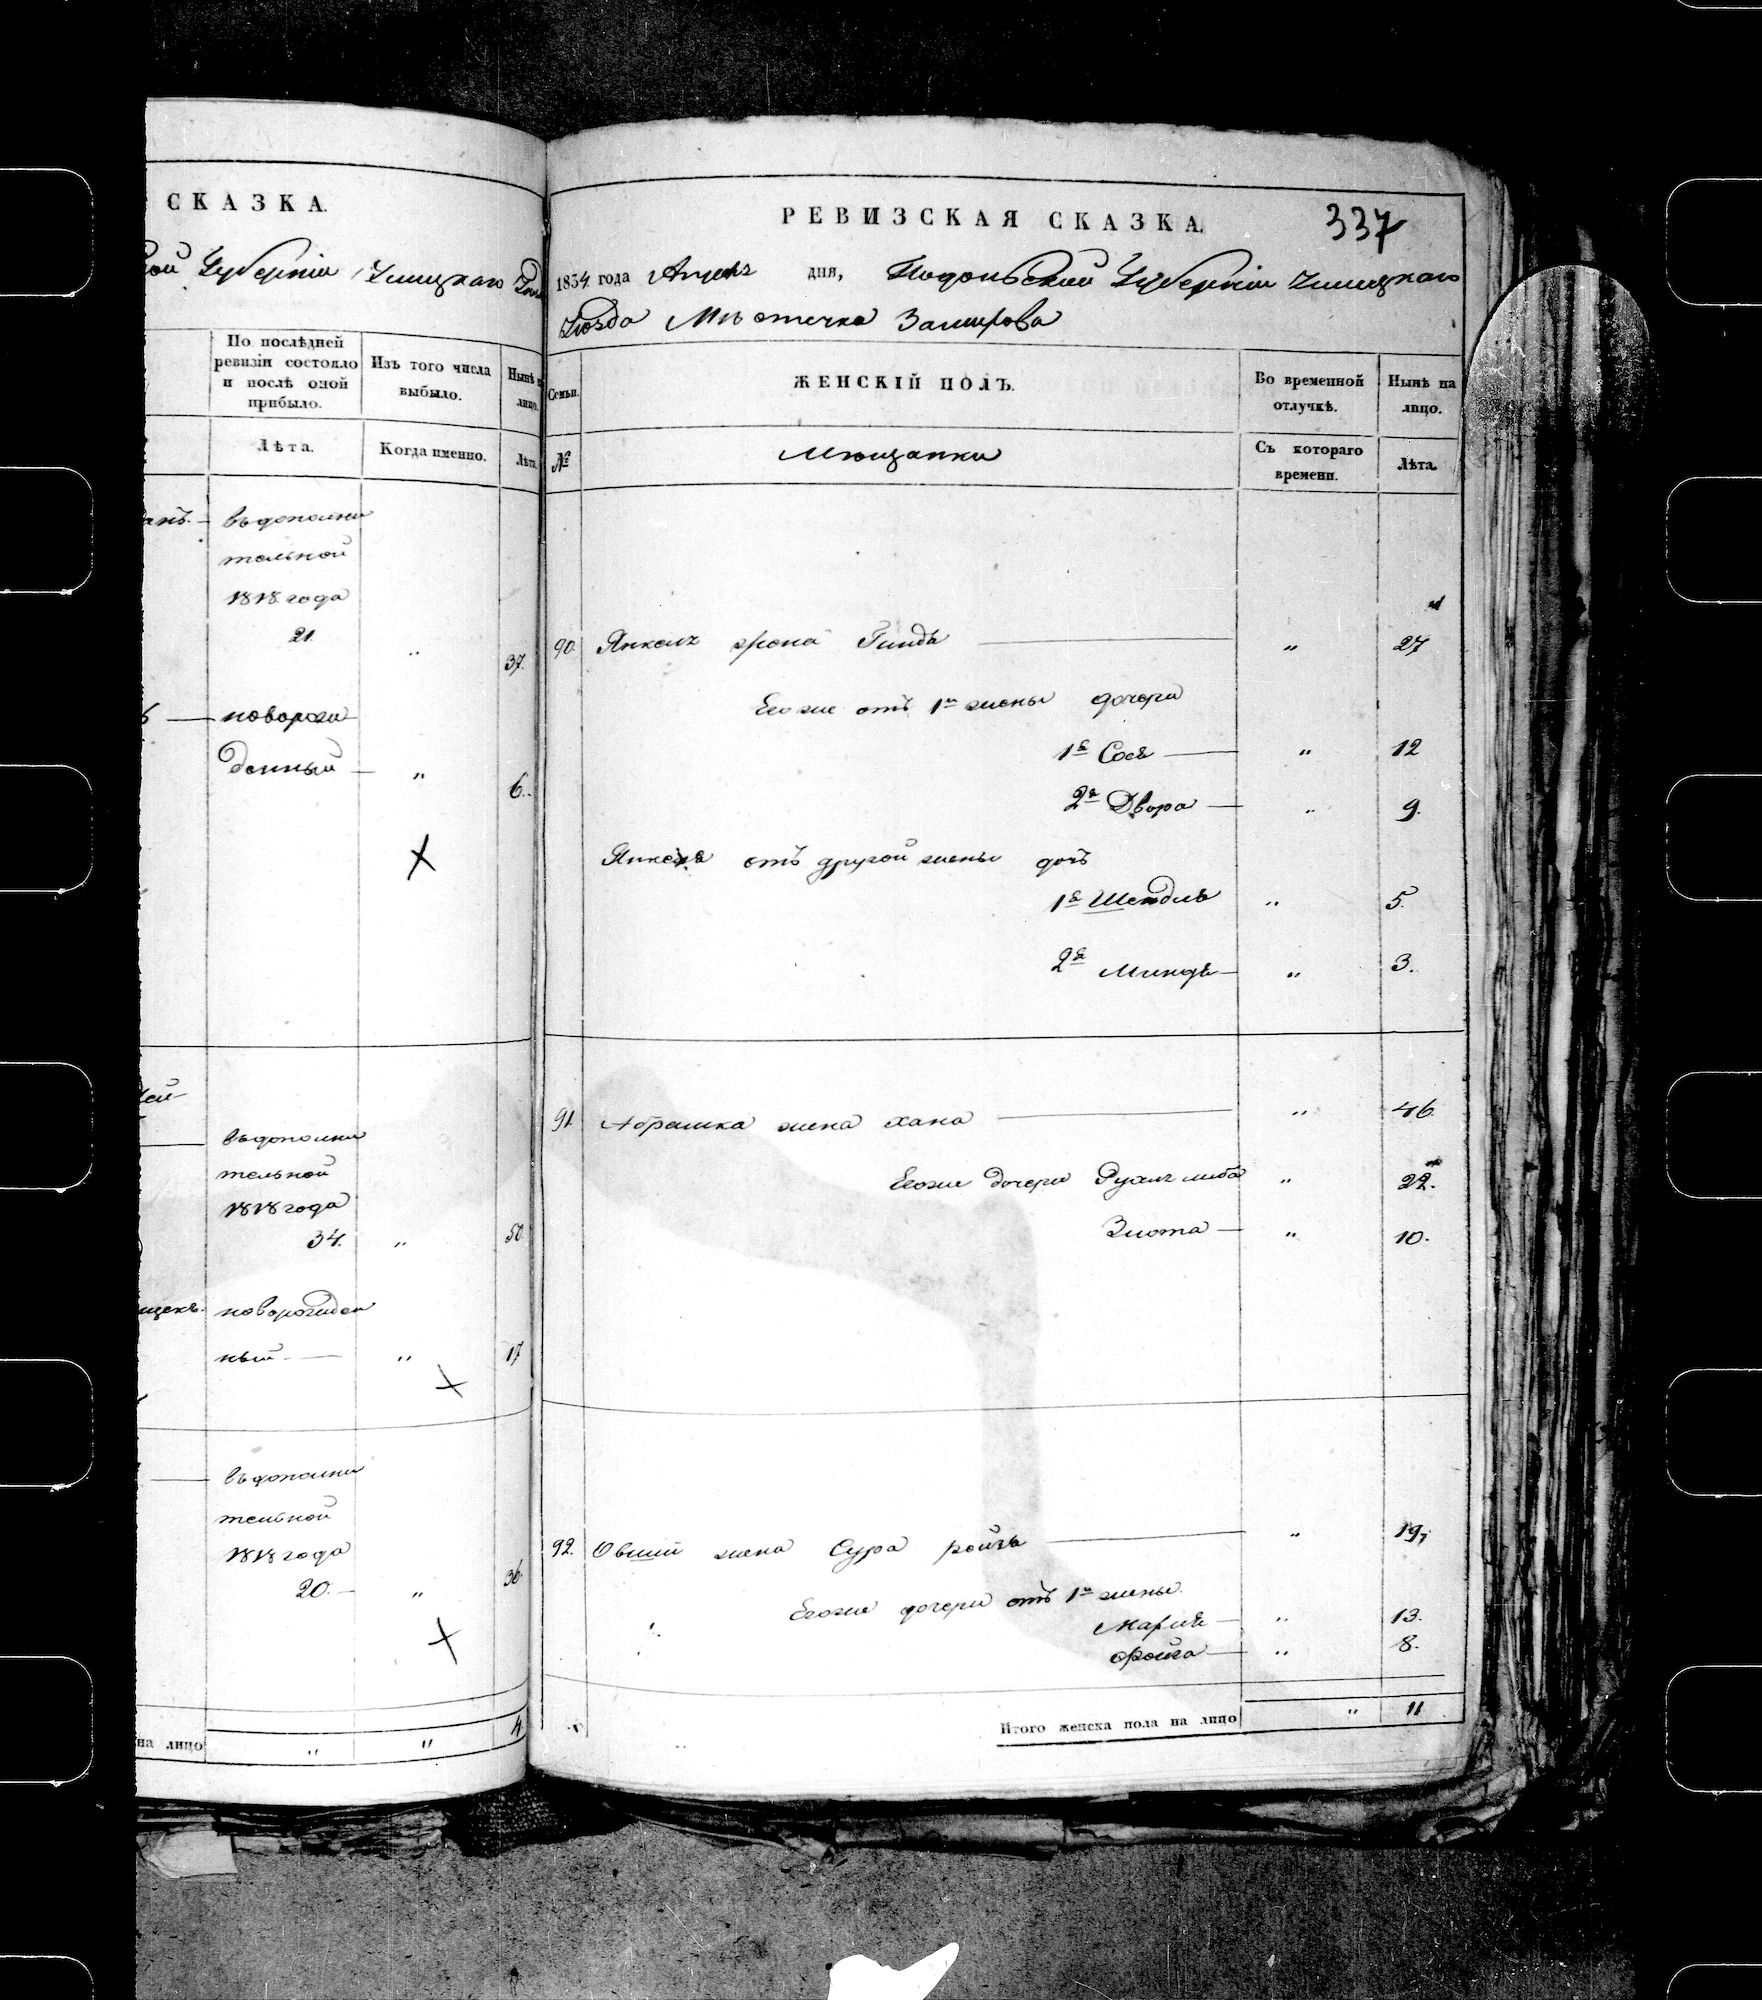 СКАЗКА.
ой Губерніи Ушицкаго
По послѣдней
ревизіи состояло
и послѣ оной
прибыло.
Изъ того числа
выбыло.
Нынѣ н
лицо.
Лѣта.
Когда именно.
Лѣта
въ дополни
тельной
1818 года
21. " 37.
новорож
денный — " 6.
въ дополни
тельной
1818 года
34. " 50
новорожден
ный — " 17
въ дополни
тельной
1818 года
20. — " 36.
на лицо " " 4
РЕВИЗСКАЯ СКАЗКА. 337
1854 года дня, Подольской Губерніи Ушицкаго
Уѣзда Мѣстечка Замѣхова
Семьи.
ЖЕНСКІЙ ПОЛЪ.
Во временной
отлучкѣ.
Нынѣ на
лицо.
№
Мѣщанки
Съ котораго
времени.
Лѣта.
90. Янкеля жена Гинда — " 27
Его же отъ 1й жены дочери
1я Сося — " 12
2я Двора — " 9.
Янкеля отъ другой жены дочь
1я Шендля " 5.
2я Миндя — " 3.
91. Абрамка жена Хана — " 46.
Его же дочери Рухля либа " 22.
Злота — " 10.
92. Овшии жена Сура ройза — " 19
Его же дочери отъ 1й жены
Марія — " 13.
Фройга — " 8.
Итого женска пола на лицо " 11